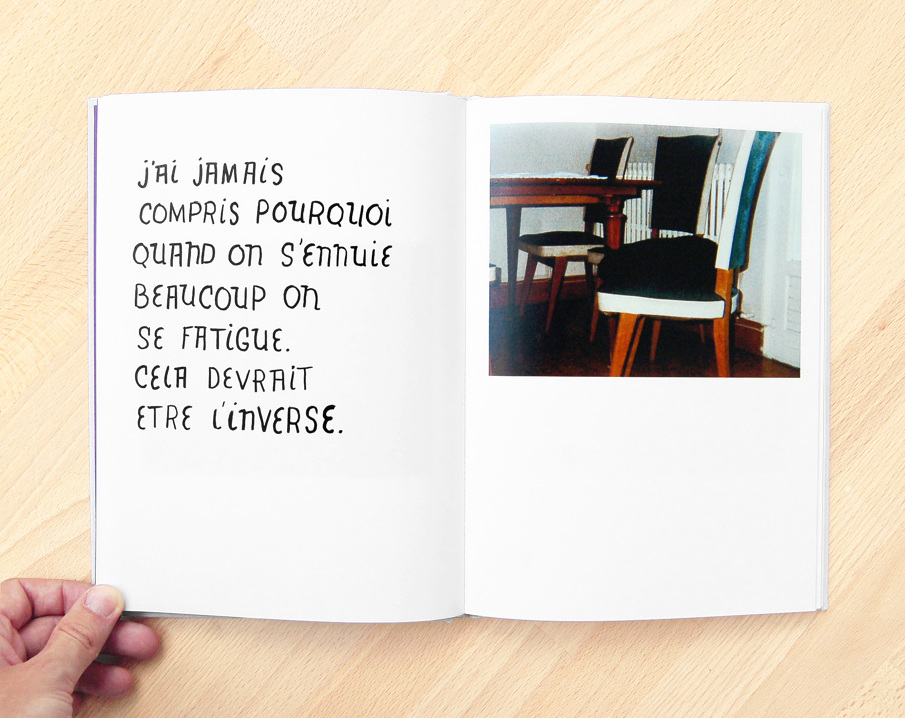 J'Ai JAMAiS
COMPRiS POURQUOi
QUAND ON S'ENNUiE
BEAUCOUP ON
SE FATiGUE.
CELA DEVRAiT
ETRE L'iNVERSE.